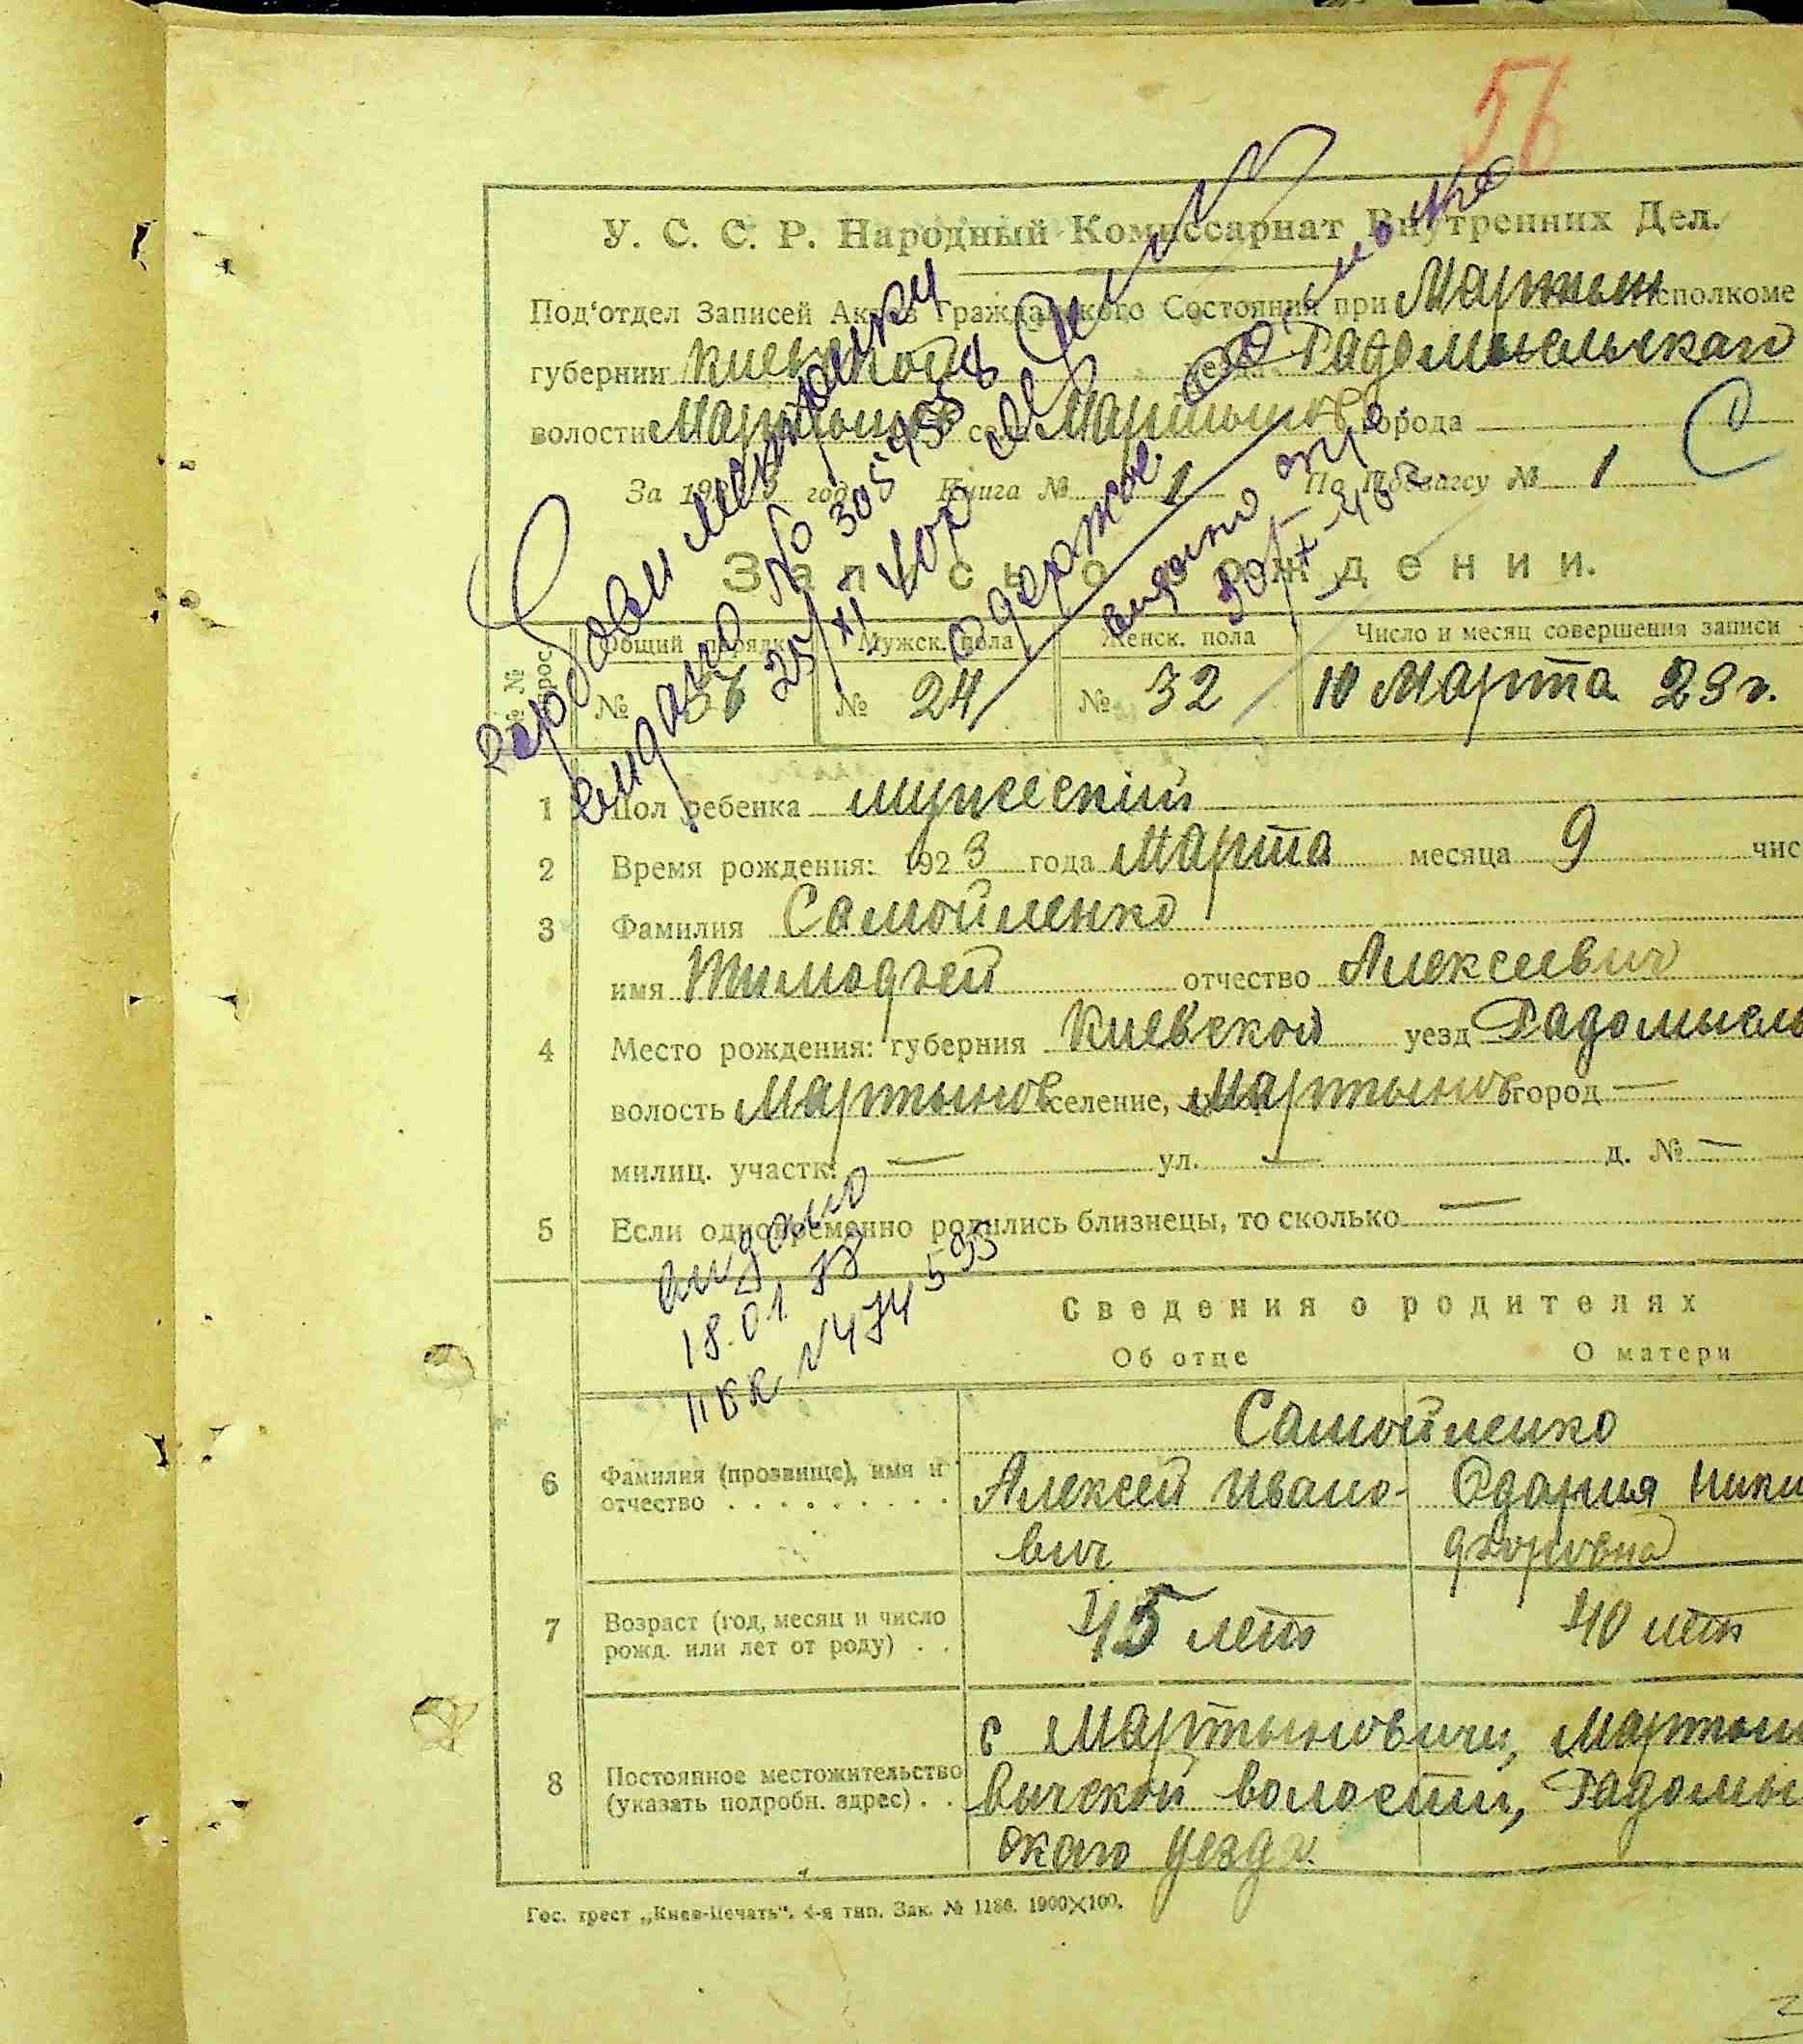 56
У. С. С. Р. Народный Комиссариат Внутренних Дел.
Под'отдел Записей Актов Гражданского Состояния при Мартын исполкоме
губернии Киевской уезда Радомысльскаго
волости Мартынов села Мартынов города —
За 1923 год. Книга № 1 По Алфавиту № 1 С
Запись о рождении.
№№ вопрос. Общий порядк. Мужск. пола Женск. пола Число и месяц совершения записи
№ 56 № 24 № 32 10 Марта 23 г.
видано
№ 305495
25/XI
одержав.
видано
30/X-46
1 Пол ребенка мужескiй
2 Время рождения: 1923 года Марта месяца 9 чис
3 Фамилия Самойленко
имя Тимофей отчество Алексеевич
4 Место рождения: губерния Киевской уезд Радомысль
волость Мартынов селение, Мартынов город —
милиц. участк. — ул. — д. № —
5 Если одновременно родились близнецы, то сколько —
видано
18.01.77
ІІ БК №474593
Сведения о родителях
Об отце О матери
Самойленко
6 Фамилия (прозвище), имя и отчество . . . . . . . . . Алексей Ивано- Одария Ники
вич форовна
7 Возраст (год, месяц и число рожд. или лет от роду) . . 45 лет 40 лет
8 Постоянное местожительство (указать подробн. адрес) . . с Мартыновичи, Мартын
вичской волости, Радомы
скаго уезда
Гос. трест „Киев-Печать“. 4-я тип. Зак. № 1186. 1900×100.